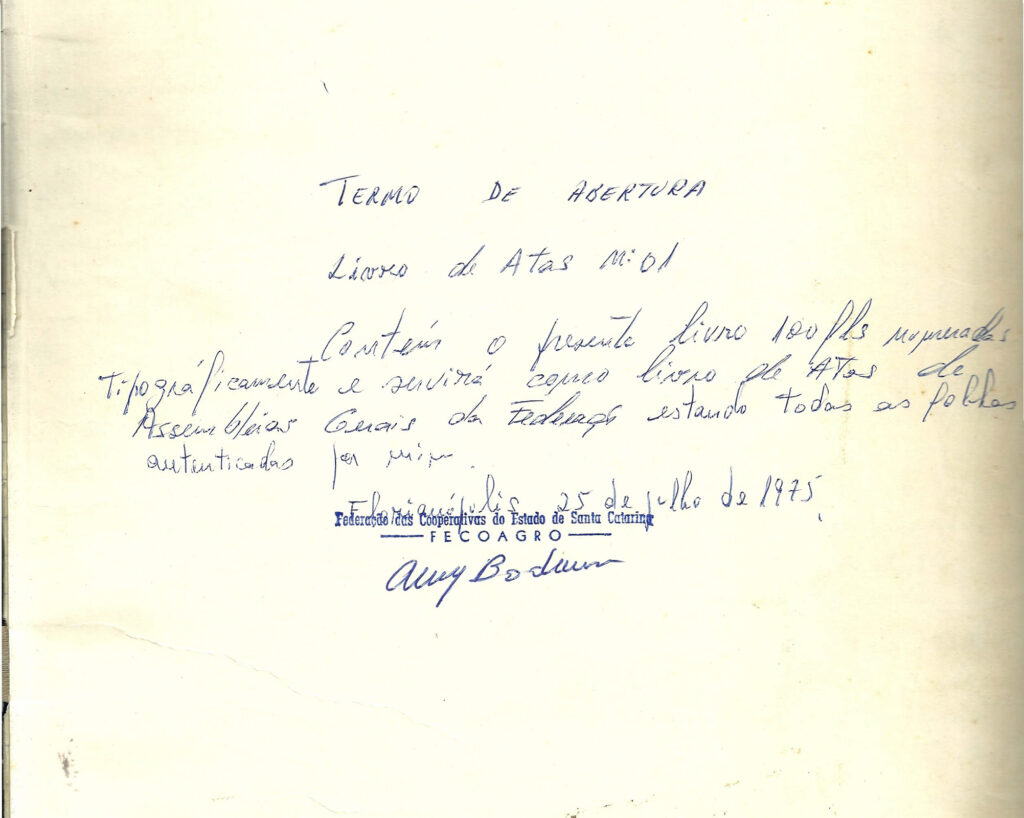 TERMO DE ABERTURA
Livro de Atas Nº 01
Contém o presente livro 100 fls numeradas
Tipográficamente e servirá como livro de ATas de
Assembléias Gerais da Federação estando todas as folhas
autenticadas por mim.
Florianópolis, 25 de julho de 1975.
Federação das Cooperativas do Estado de Santa Catarina
FECOAGRO